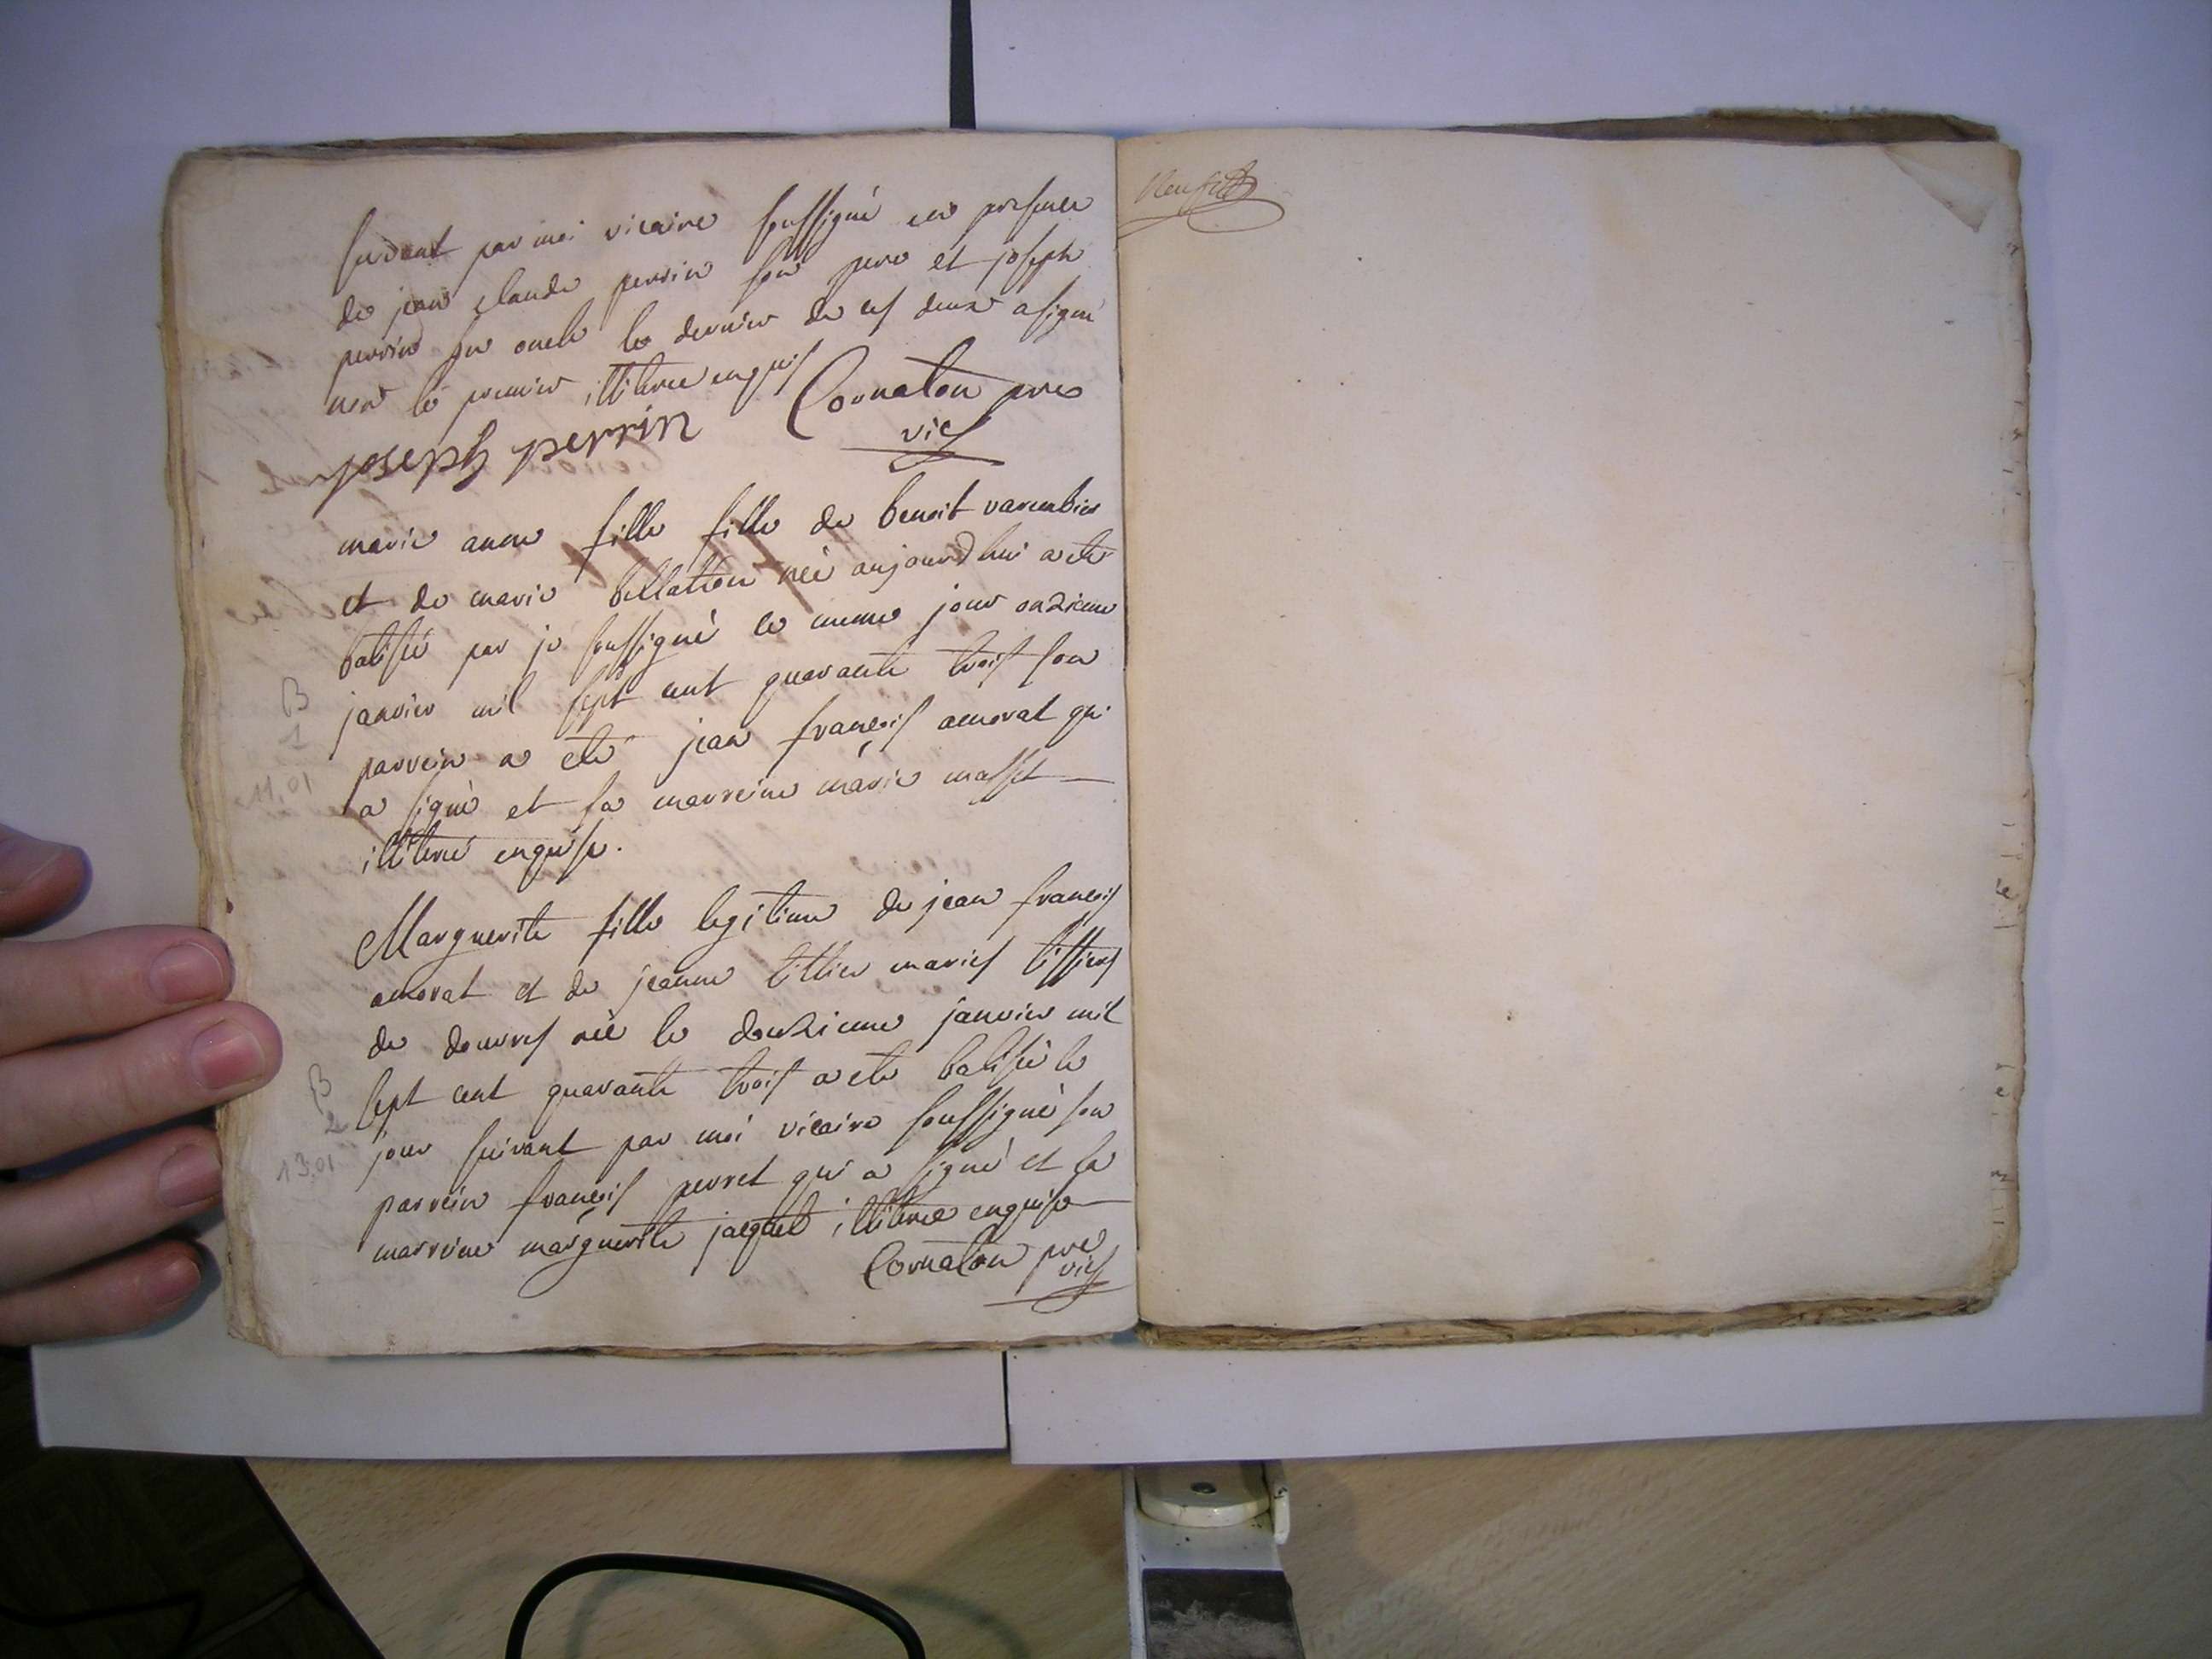 suivant par moi vicaire soussigné en presence
de jean claude perrin son pere et joseph
perrin son oncle le dernier de ces deux a signé
non le premier illiteré enquis
Cornaton pre
vic
joseph perrin
marie anne fille fille de benoit varembier
et de marie billation née aujourd hui a eté
batisée par je soussigné le meme jour onzieme
janvier mil sept cent quarante trois son
parrein a eté jean françois amorat qui
a signé et sa marreine marie masset
illiteré enquise.
Marguerite fille legitime de jean françois
amorat et de jeanne tillier mariés tissiers
de douvres née le douzieme janvier mil
sept cent quarante trois a eté batisée le
jour suivant par moi vicaire soussigné son
parrein françois perret qui a signé et sa
marreine marguerite jacquet illiterée enquise
Cornaton pre
vic
B
1
11.01
B
2
13.01